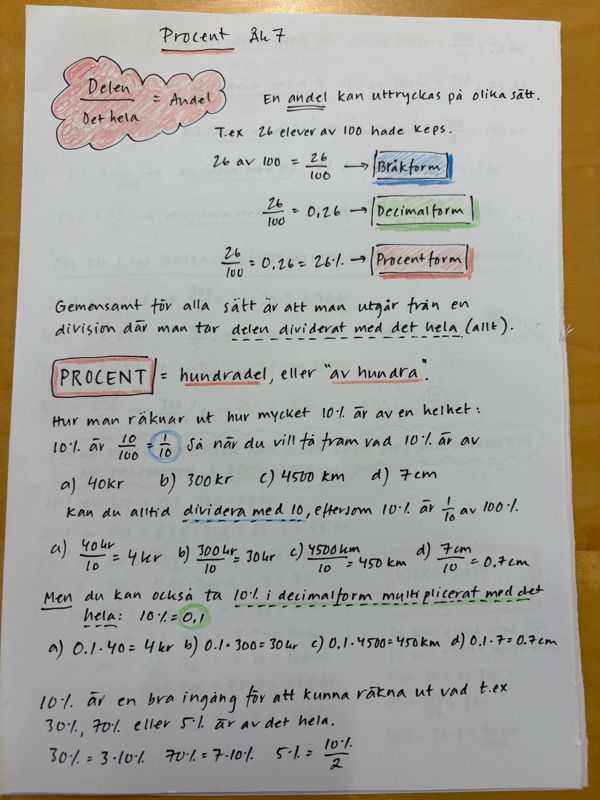 Procent Åk 7
Delen / Det hela = Andel
En andel kan uttryckas på olika sätt.
T.ex 26 elever av 100 hade keps.
26 av 100 = 26/100 → Bråkform
26/100 = 0,26 → Decimalform
26/100 = 0,26 = 26% → Procentform
Gemensamt för alla sätt är att man utgår från en
division där man tar delen dividerat med det hela (allt).
PROCENT = hundradel, eller "av hundra".
Hur man räknar ut hur mycket 10% är av en helhet:
10% är 10/100 = 1/10 Så när du vill få fram vad 10% är av
a) 40kr b) 300kr c) 4500 km d) 7cm
kan du alltid dividera med 10, eftersom 10% är 1/10 av 100%.
a) 40kr/10 = 4kr b) 300kr/10 = 30kr c) 4500km/10 = 450km d) 7cm/10 = 0.7cm
Men du kan också ta 10% i decimalform multiplicerat med det
hela: 10% = 0,1
a) 0.1·40 = 4kr b) 0.1·300 = 30kr c) 0.1·4500 = 450km d) 0.1·7 = 0.7cm
10% är en bra ingång för att kunna räkna ut vad t.ex
30%, 70% eller 5% är av det hela.
30% = 3·10% 70% = 7·10% 5% = 10%/2